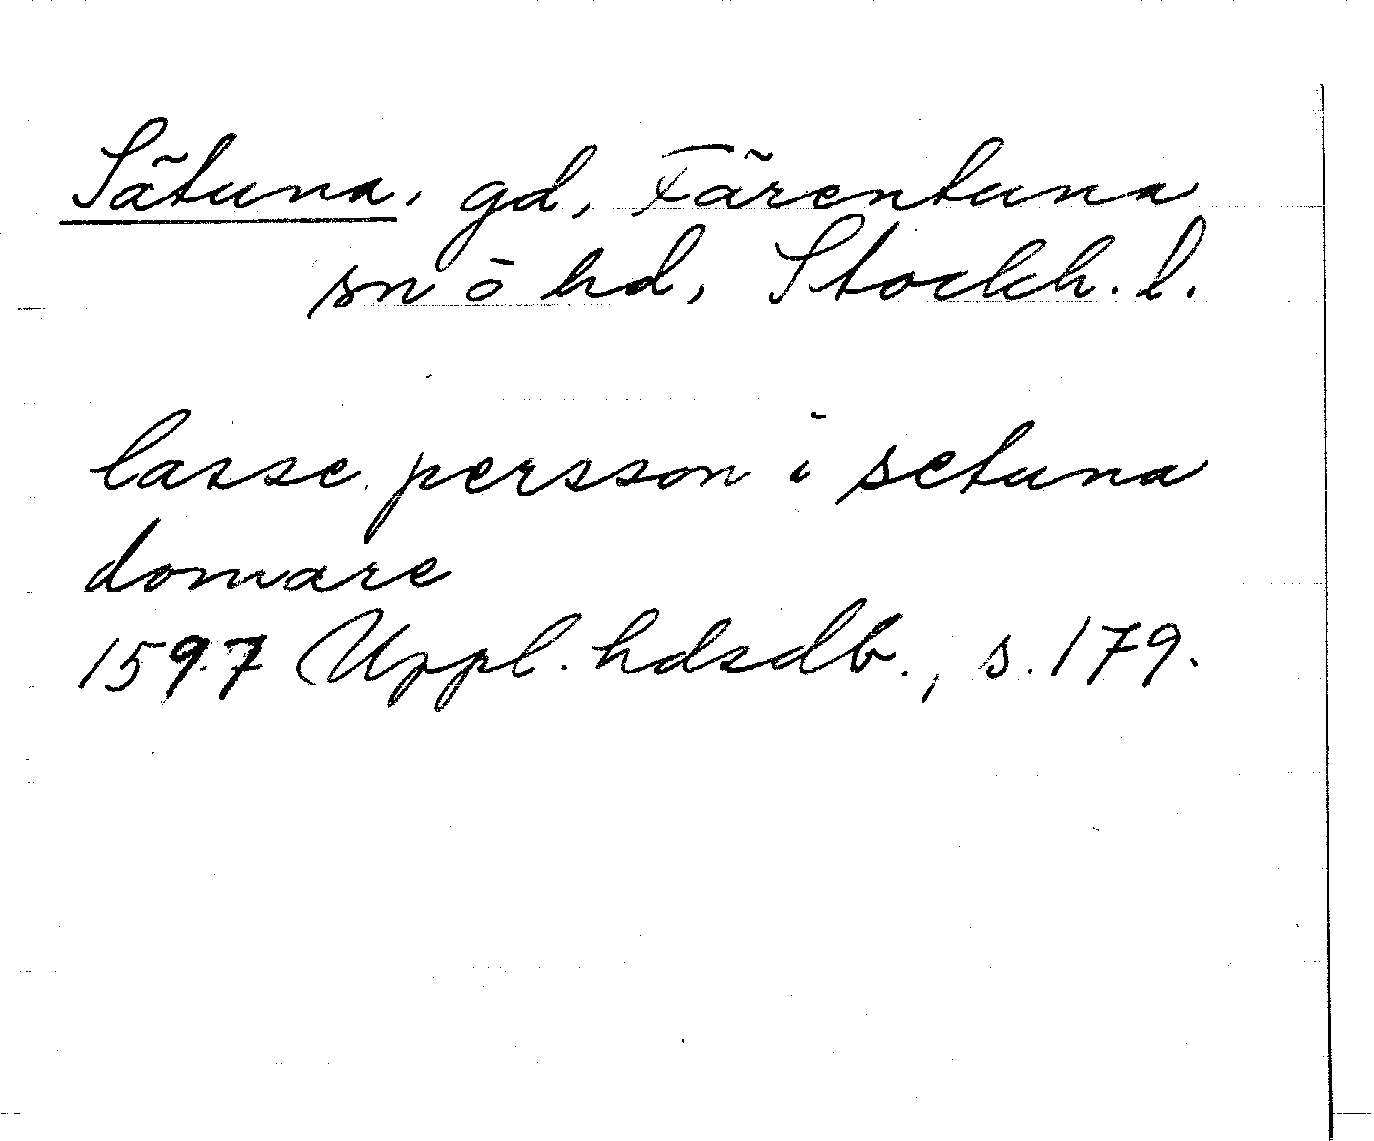 Sätuna, gd, Färentuna
sn ö hd, Stockh. l.
lasse persson i setuna
domare
1597 Uppl. hdsdb., s. 179.